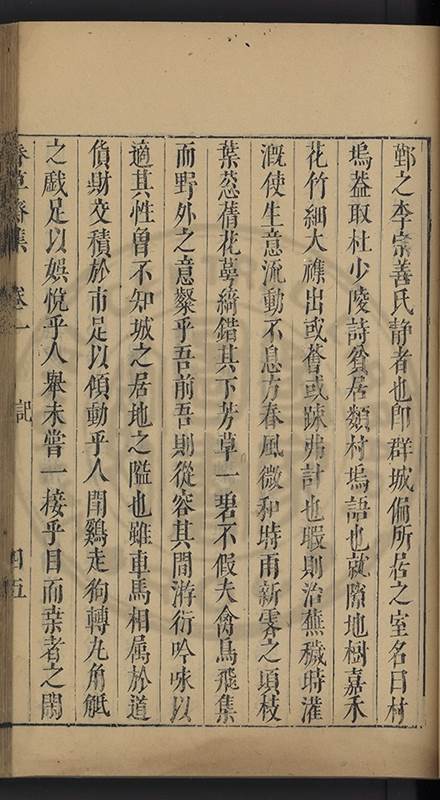 鄞之李宗善氏静者也卽群城偏所居之室名曰村
塢葢取杜少陵詩貧居類村塢語也就隙地樹嘉禾
花竹細大襍出或奮或疎弗計也暇則治蕪穢時灌
溉使生意流動不息方春風微和時雨新霽之頃枝
葉葱蒨花萼綺錯其下芳草一碧不假夫禽鳥飛集
而野外之意粲乎吾前吾則從容其間游衍吟咏以
適其性曾不知城之居地之隘也雖車馬相属於道
貨財交積於市足以傾動乎人閗鷄走狗轉丸角觝
之戱足以娯悅乎人舉未嘗一接乎目而
者之閙
集 卷一 記 四五